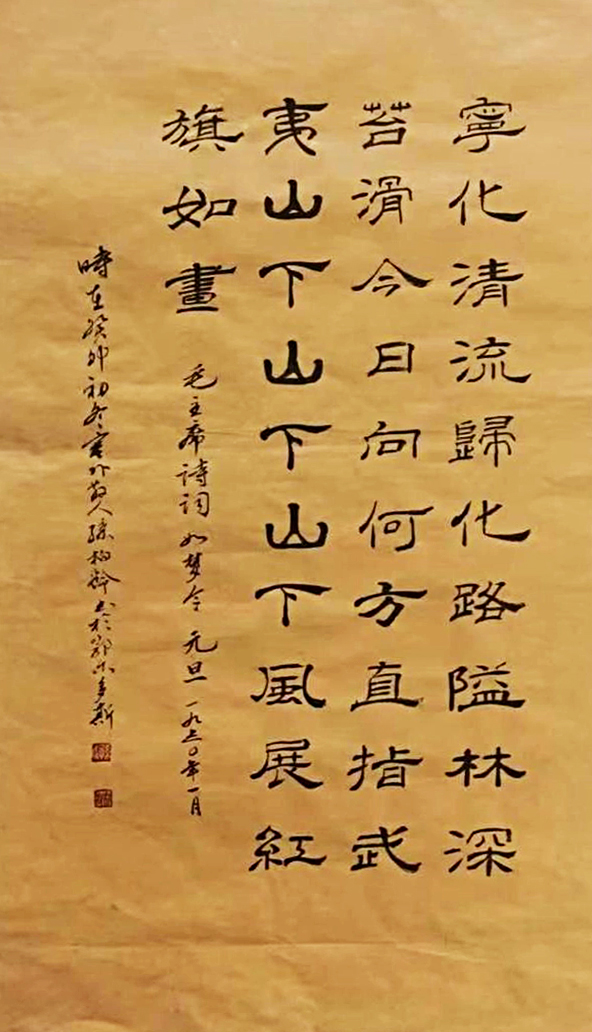 寧化清流歸化路隘林深
苔滑今日向何方直指武
夷山下山下山下風展紅
旗如畫
毛主席诗词 如梦令 元旦 一九三〇年一月
時在癸卯初冬塞外散人孫柏龄书於鄂尔多斯